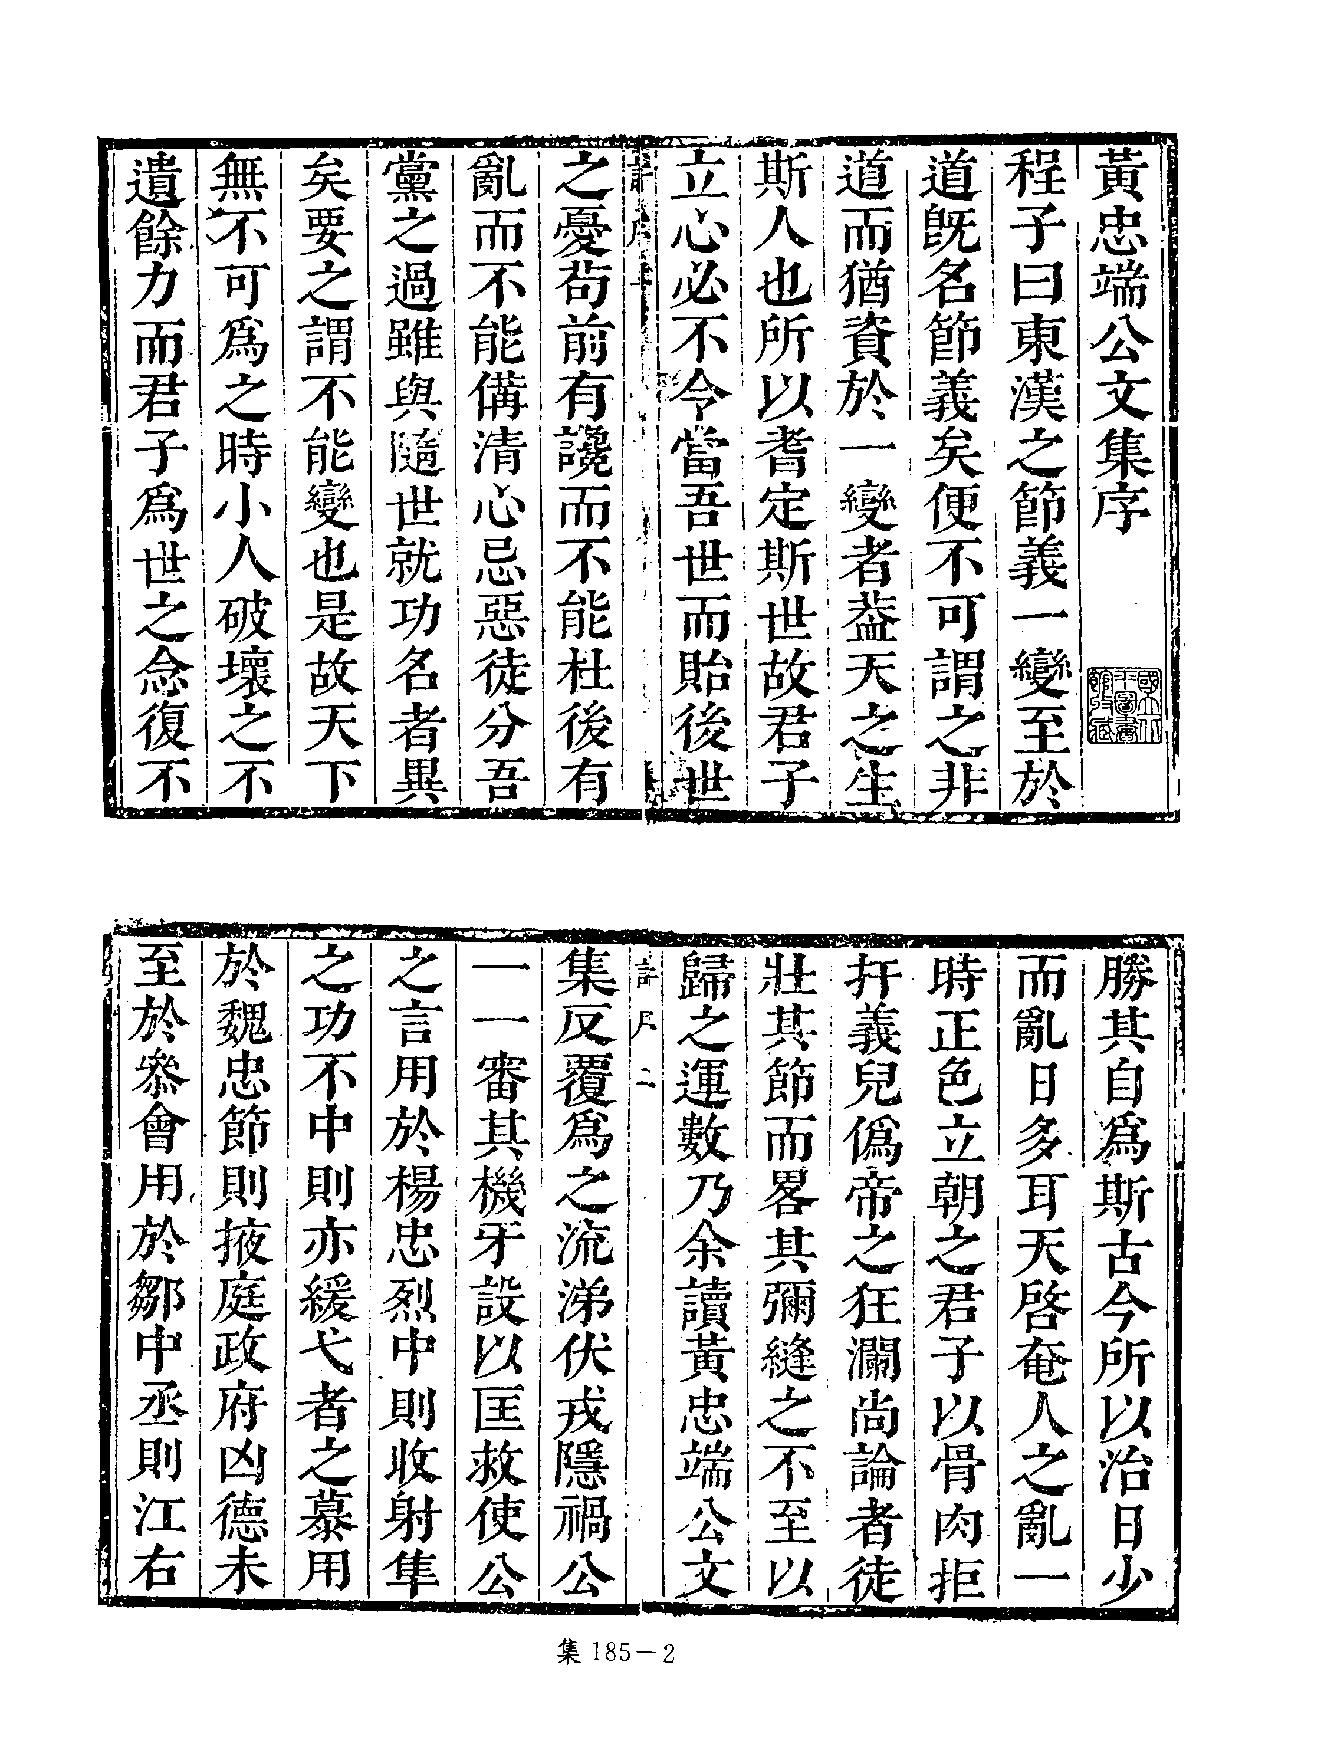 黃忠端公文集序
程子曰東漢之節義一變至於
道旣名節義矣便不可謂之非
道而猶資於一變者葢天之生
斯人也所以耆定斯世故君子
立心必不令當吾世而貽後世
之憂苟前有讒而不能杜後有
亂而不能備清心忌惡徒分吾
黨之過雖與隨世就功名者異
矣要之謂不能變也是故天下
無不可爲之時小人破壞之不
遺餘力而君子爲世之念復不
勝其自爲斯古今所以治日少
而亂日多耳天啓奄人之亂一
時正色立朝之君子以骨肉拒
扞義兒僞帝之狂瀾尚論者徒
壯其節而畧其彌縫之不至以
歸之運數乃余讀黃忠端公文
序 二
集反覆爲之流涕伏戎隱禍公
一一審其機牙設以匡救使公
之言用於楊忠烈中則收射隼
之功不中則亦緩弋者之慕用
於魏忠節則掖庭政府凶德未
至於叅會用於鄒中丞則江右
集 185－2